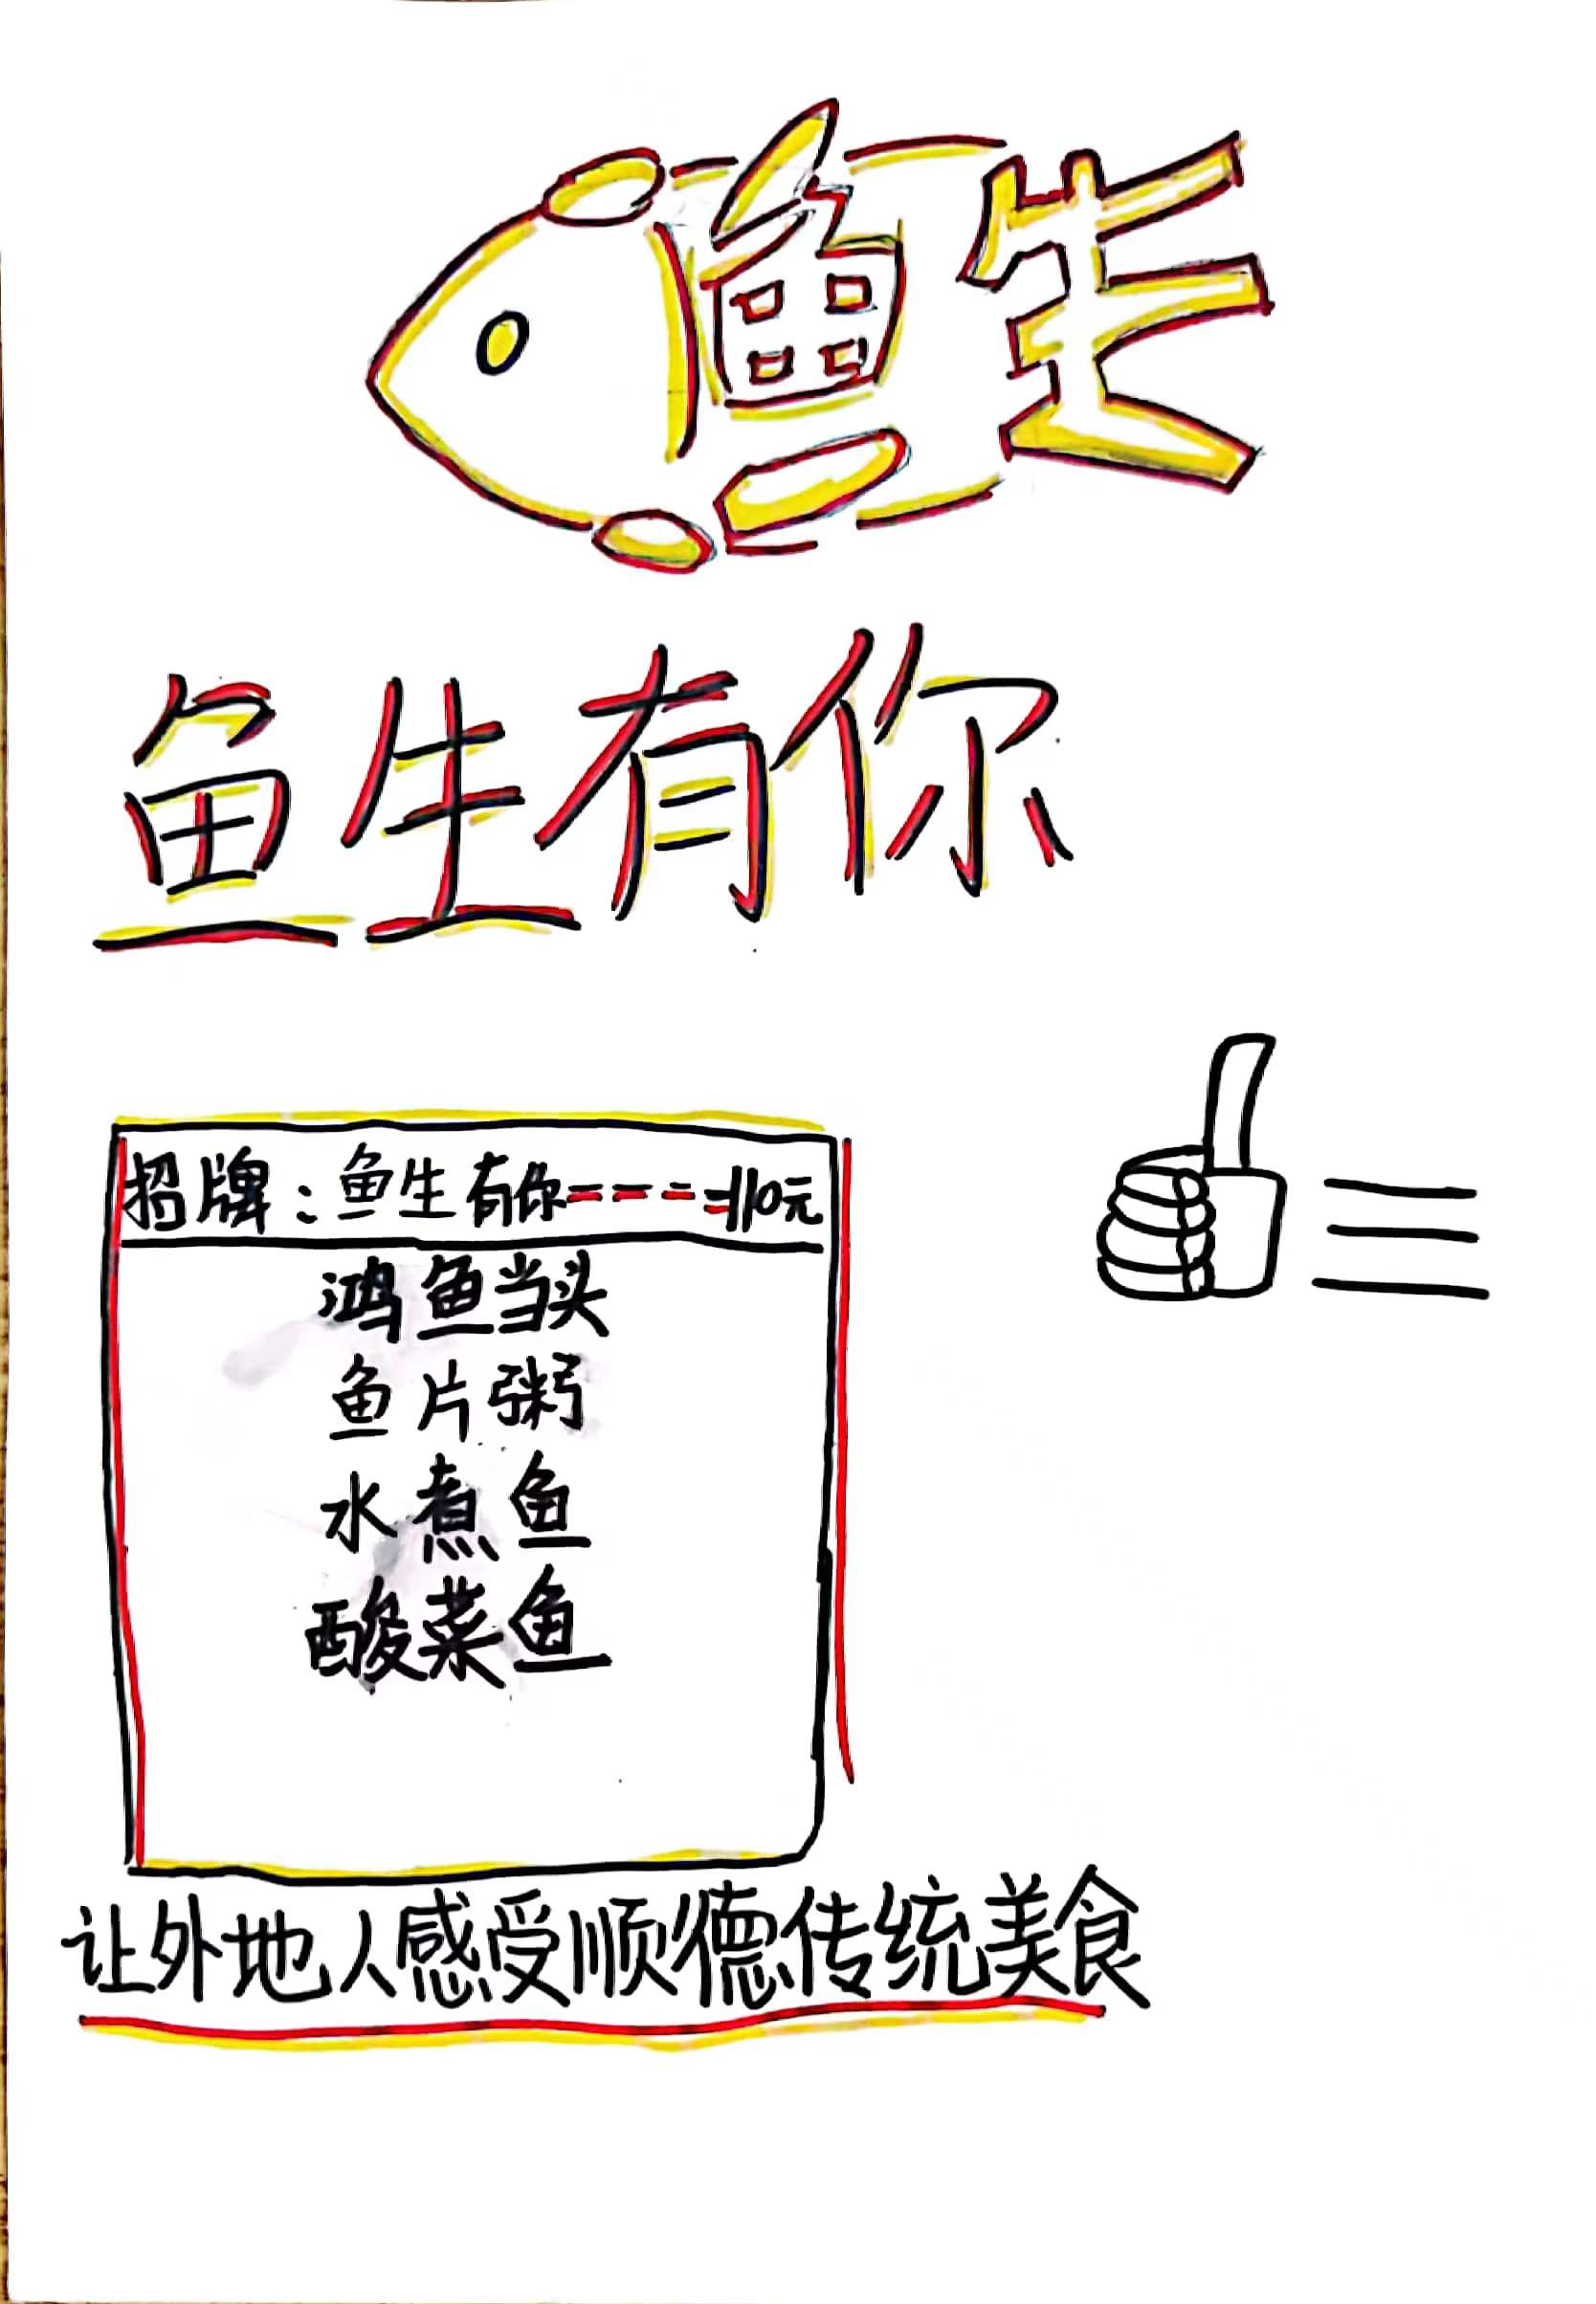 鱼生
鱼生有你
招牌：鱼生有你----110元
鸿鱼当头
鱼片粥
水煮鱼
酸菜鱼
让外地人感受顺德传统美食